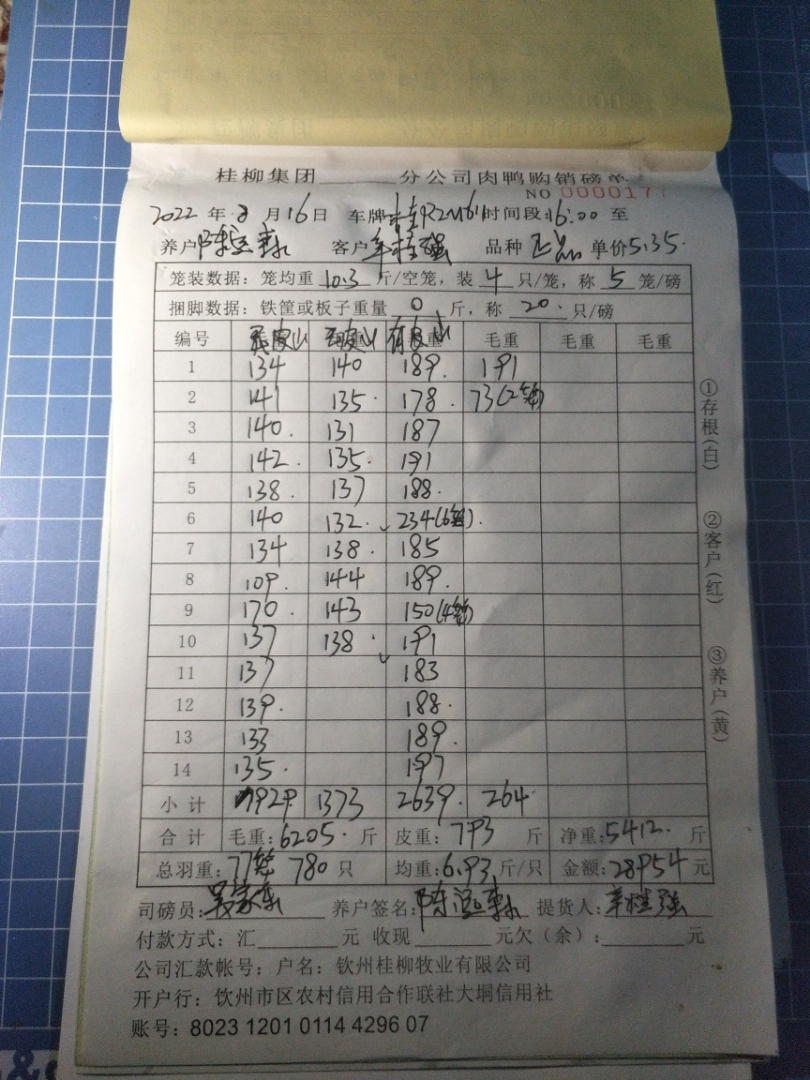 桂柳集团______分公司肉鸭购销磅单
NO 000017
2022 年 8 月 16 日 车牌 桂R2M61 时间段 16:00 至
养户 陈 客户 辛桂强 品种 正品 单价 5.35
笼装数据：笼均重 10.3 斤/空笼，装 4 只/笼，称 5 笼/磅
捆脚数据：铁筐或板子重量 0 斤，称 20 只/磅
编号 毛重 毛重 毛重
1 134 140 189 191
2 141 135 178 73(2笼)
3 140 131 187
4 142 135 191
5 138 137 188
6 140 132 234(6笼)
7 134 138 185
8 109 144 189
9 170 143 150(4笼)
10 137 138 191
11 137 183
12 139 188
13 133 189
14 135 197
小计 1929 1373 2639 264
合计 毛重：6205 斤 皮重：793 斤 净重：5412 斤
总羽重：77笼 780 只 均重：6.93 斤/只 金额：28954 元
司磅员： 养户签名：陈 提货人：辛桂强
付款方式：汇______元 收现______元欠（余）：______元
公司汇款帐号：户名：钦州桂柳牧业有限公司
开户行：钦州市区农村信用合作联社大垌信用社
账号：8023 1201 0114 4296 07
①存根(白)
②客户(红)
③养户(黄)